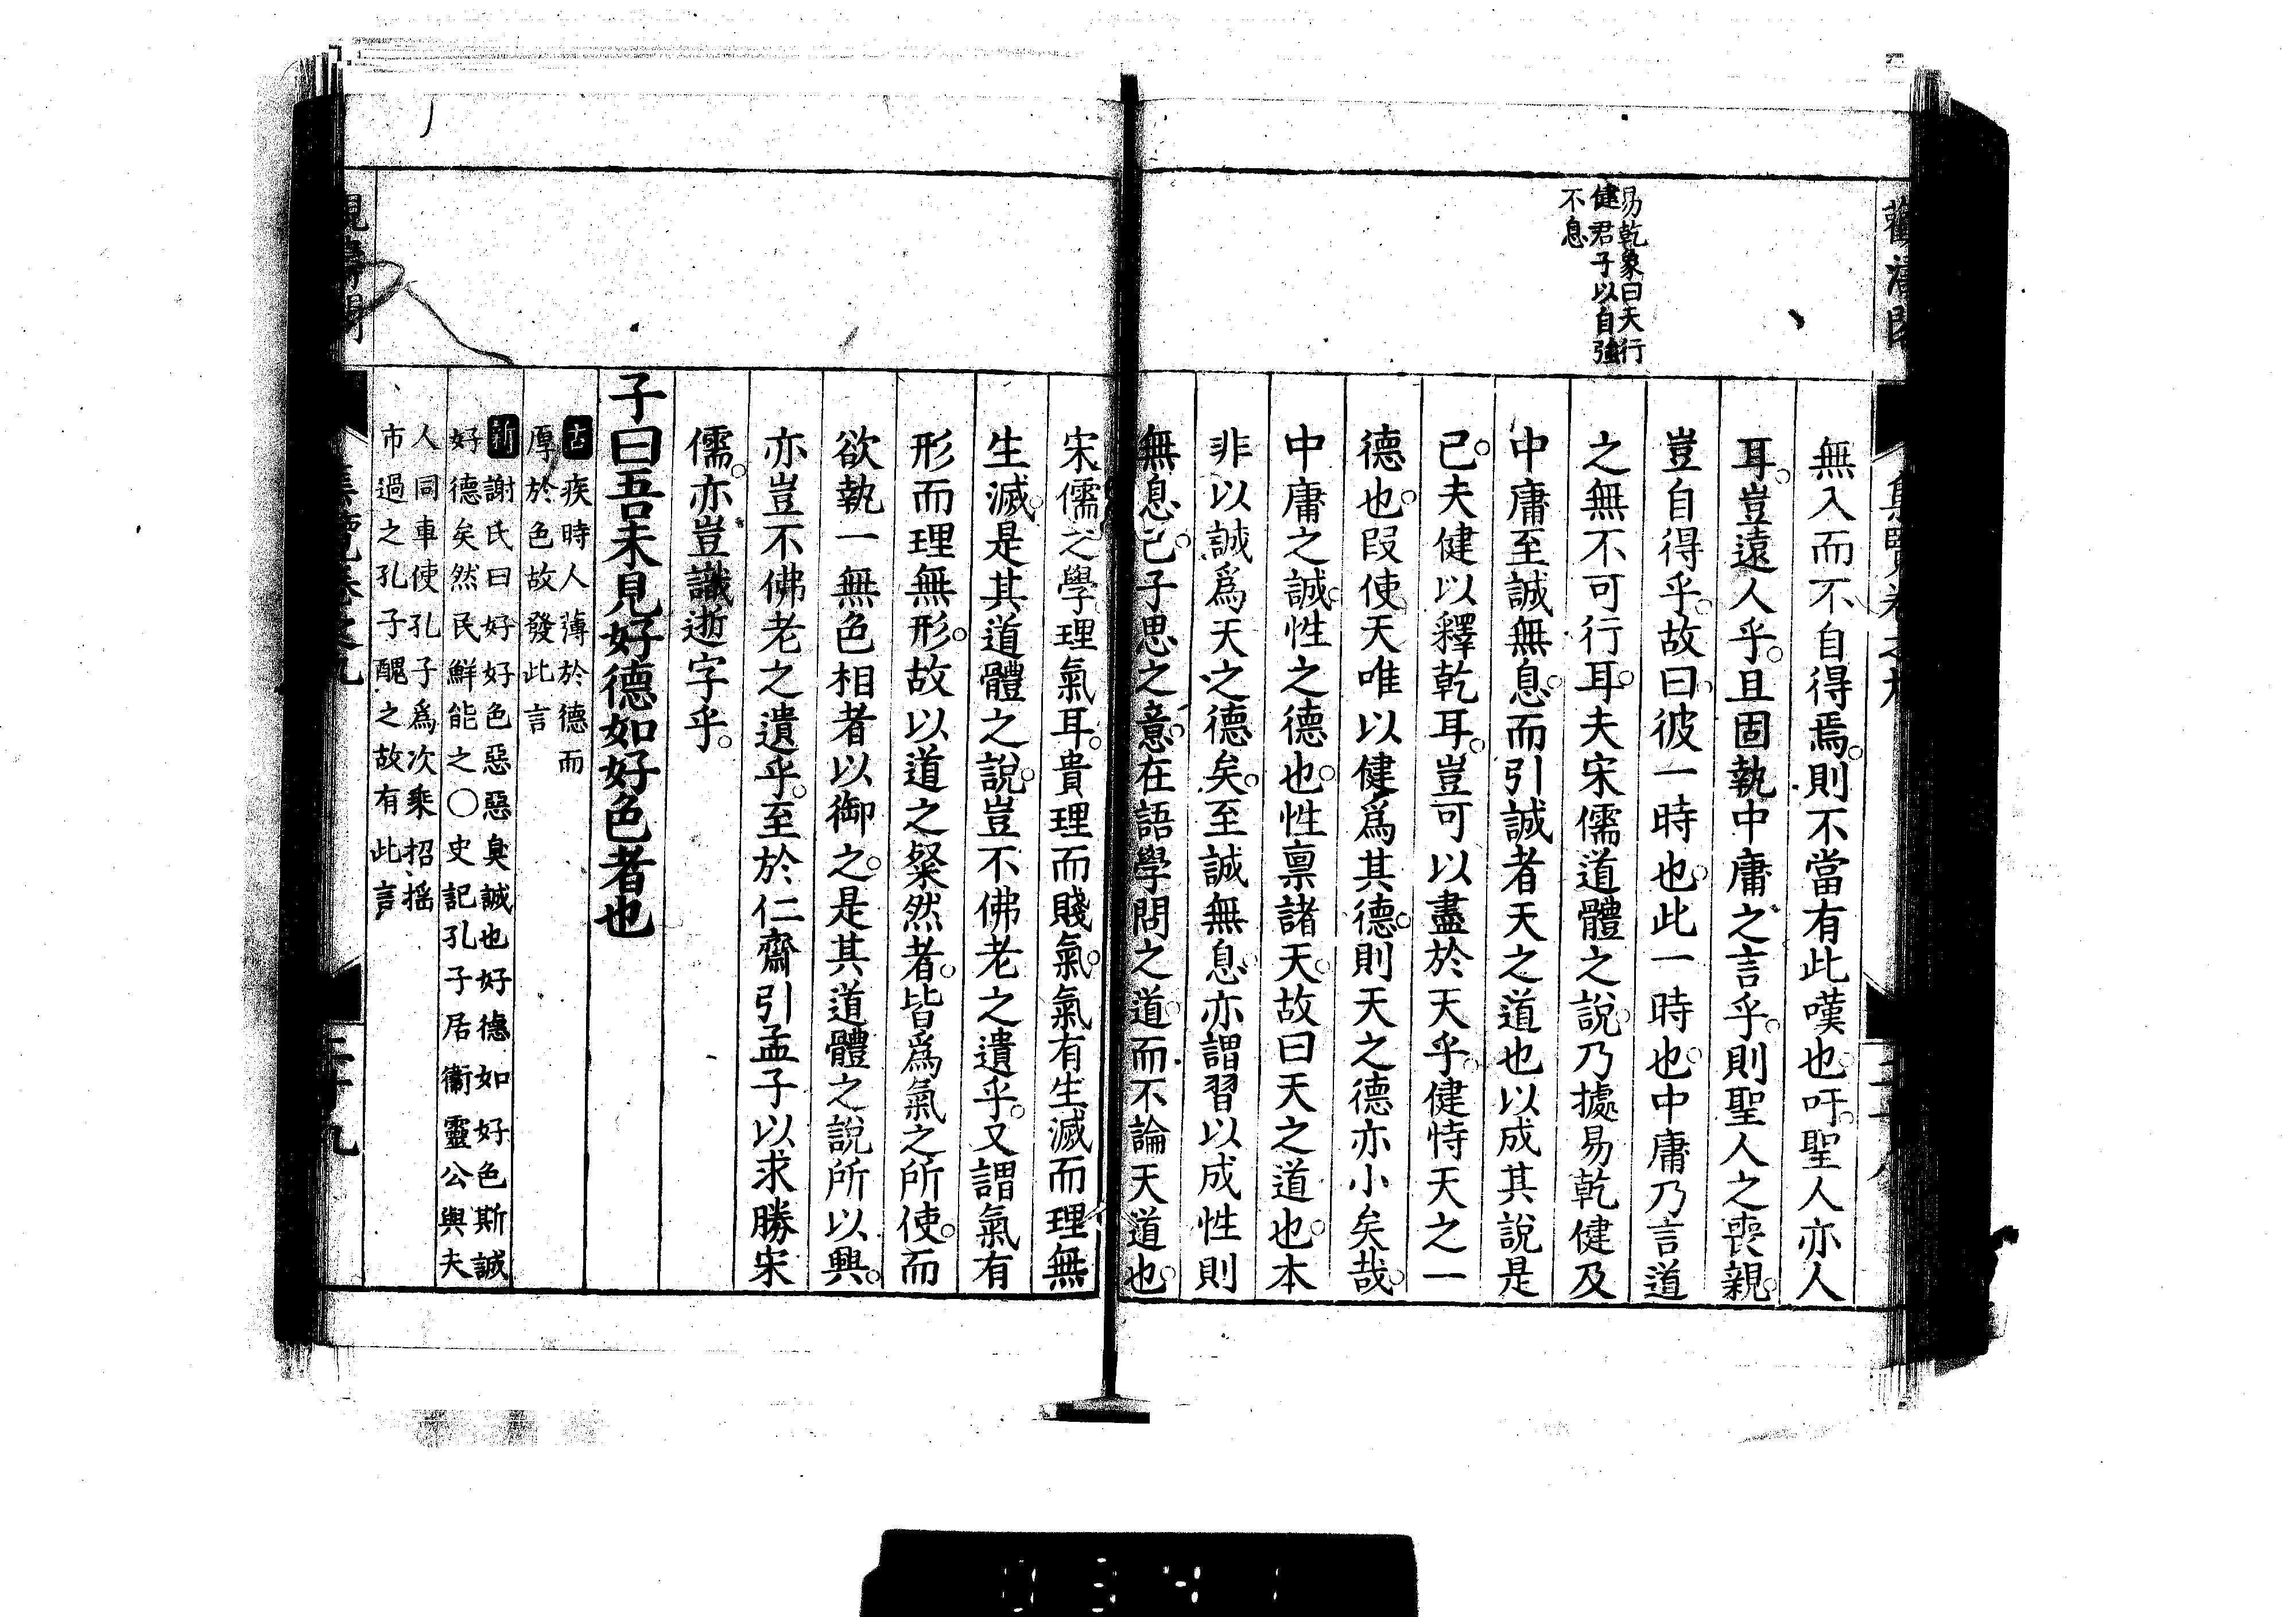 易乾象曰天行
健君子以自強
不息
無入而不自得焉。則不當有此嘆也。吁。聖人亦人
耳。豈遠人乎。且固執中庸之言乎。則聖人之喪親。
豈自得乎。故曰。彼一時也。此一時也。中庸乃言道
之無不可行耳。夫宋儒道體之說。乃據易乾健及
中庸至誠無息。而引誠者天之道也以成其說是
已。夫健以釋乾耳。豈可以盡於天乎。健恃天之一
德也。叚使天唯以健爲其德。則天之德亦小矣哉。
中庸之誠。性之德也。性禀諸天。故曰天之道也。本
非以誠爲天之德矣。至誠無息。亦謂習以成性則
無息已。子思之意。在語學問之道。而不論天道也。
宋儒之學。理氣耳。貴理而賤氣。氣有生滅而理無
生滅。是其道體之說。豈不佛老之遺乎。又謂氣有
形而理無形。故以道之粲然者。皆爲氣之所使。而
欲執一無色相者以御之。是其道體之說所以興。
亦豈不佛老之遺乎。至於仁齋引孟子以求勝宋
儒。亦豈識逝字乎。
子曰吾未見好德如好色者也
古疾時人薄於德而
厚於色故發此言
新謝氏曰好好色惡惡臭誠也好德如好色斯誠
好德矣然民鮮能之〇史記孔子居衞靈公與夫
人同車使孔子爲次乘招搖
市過之孔子醜之故有此言